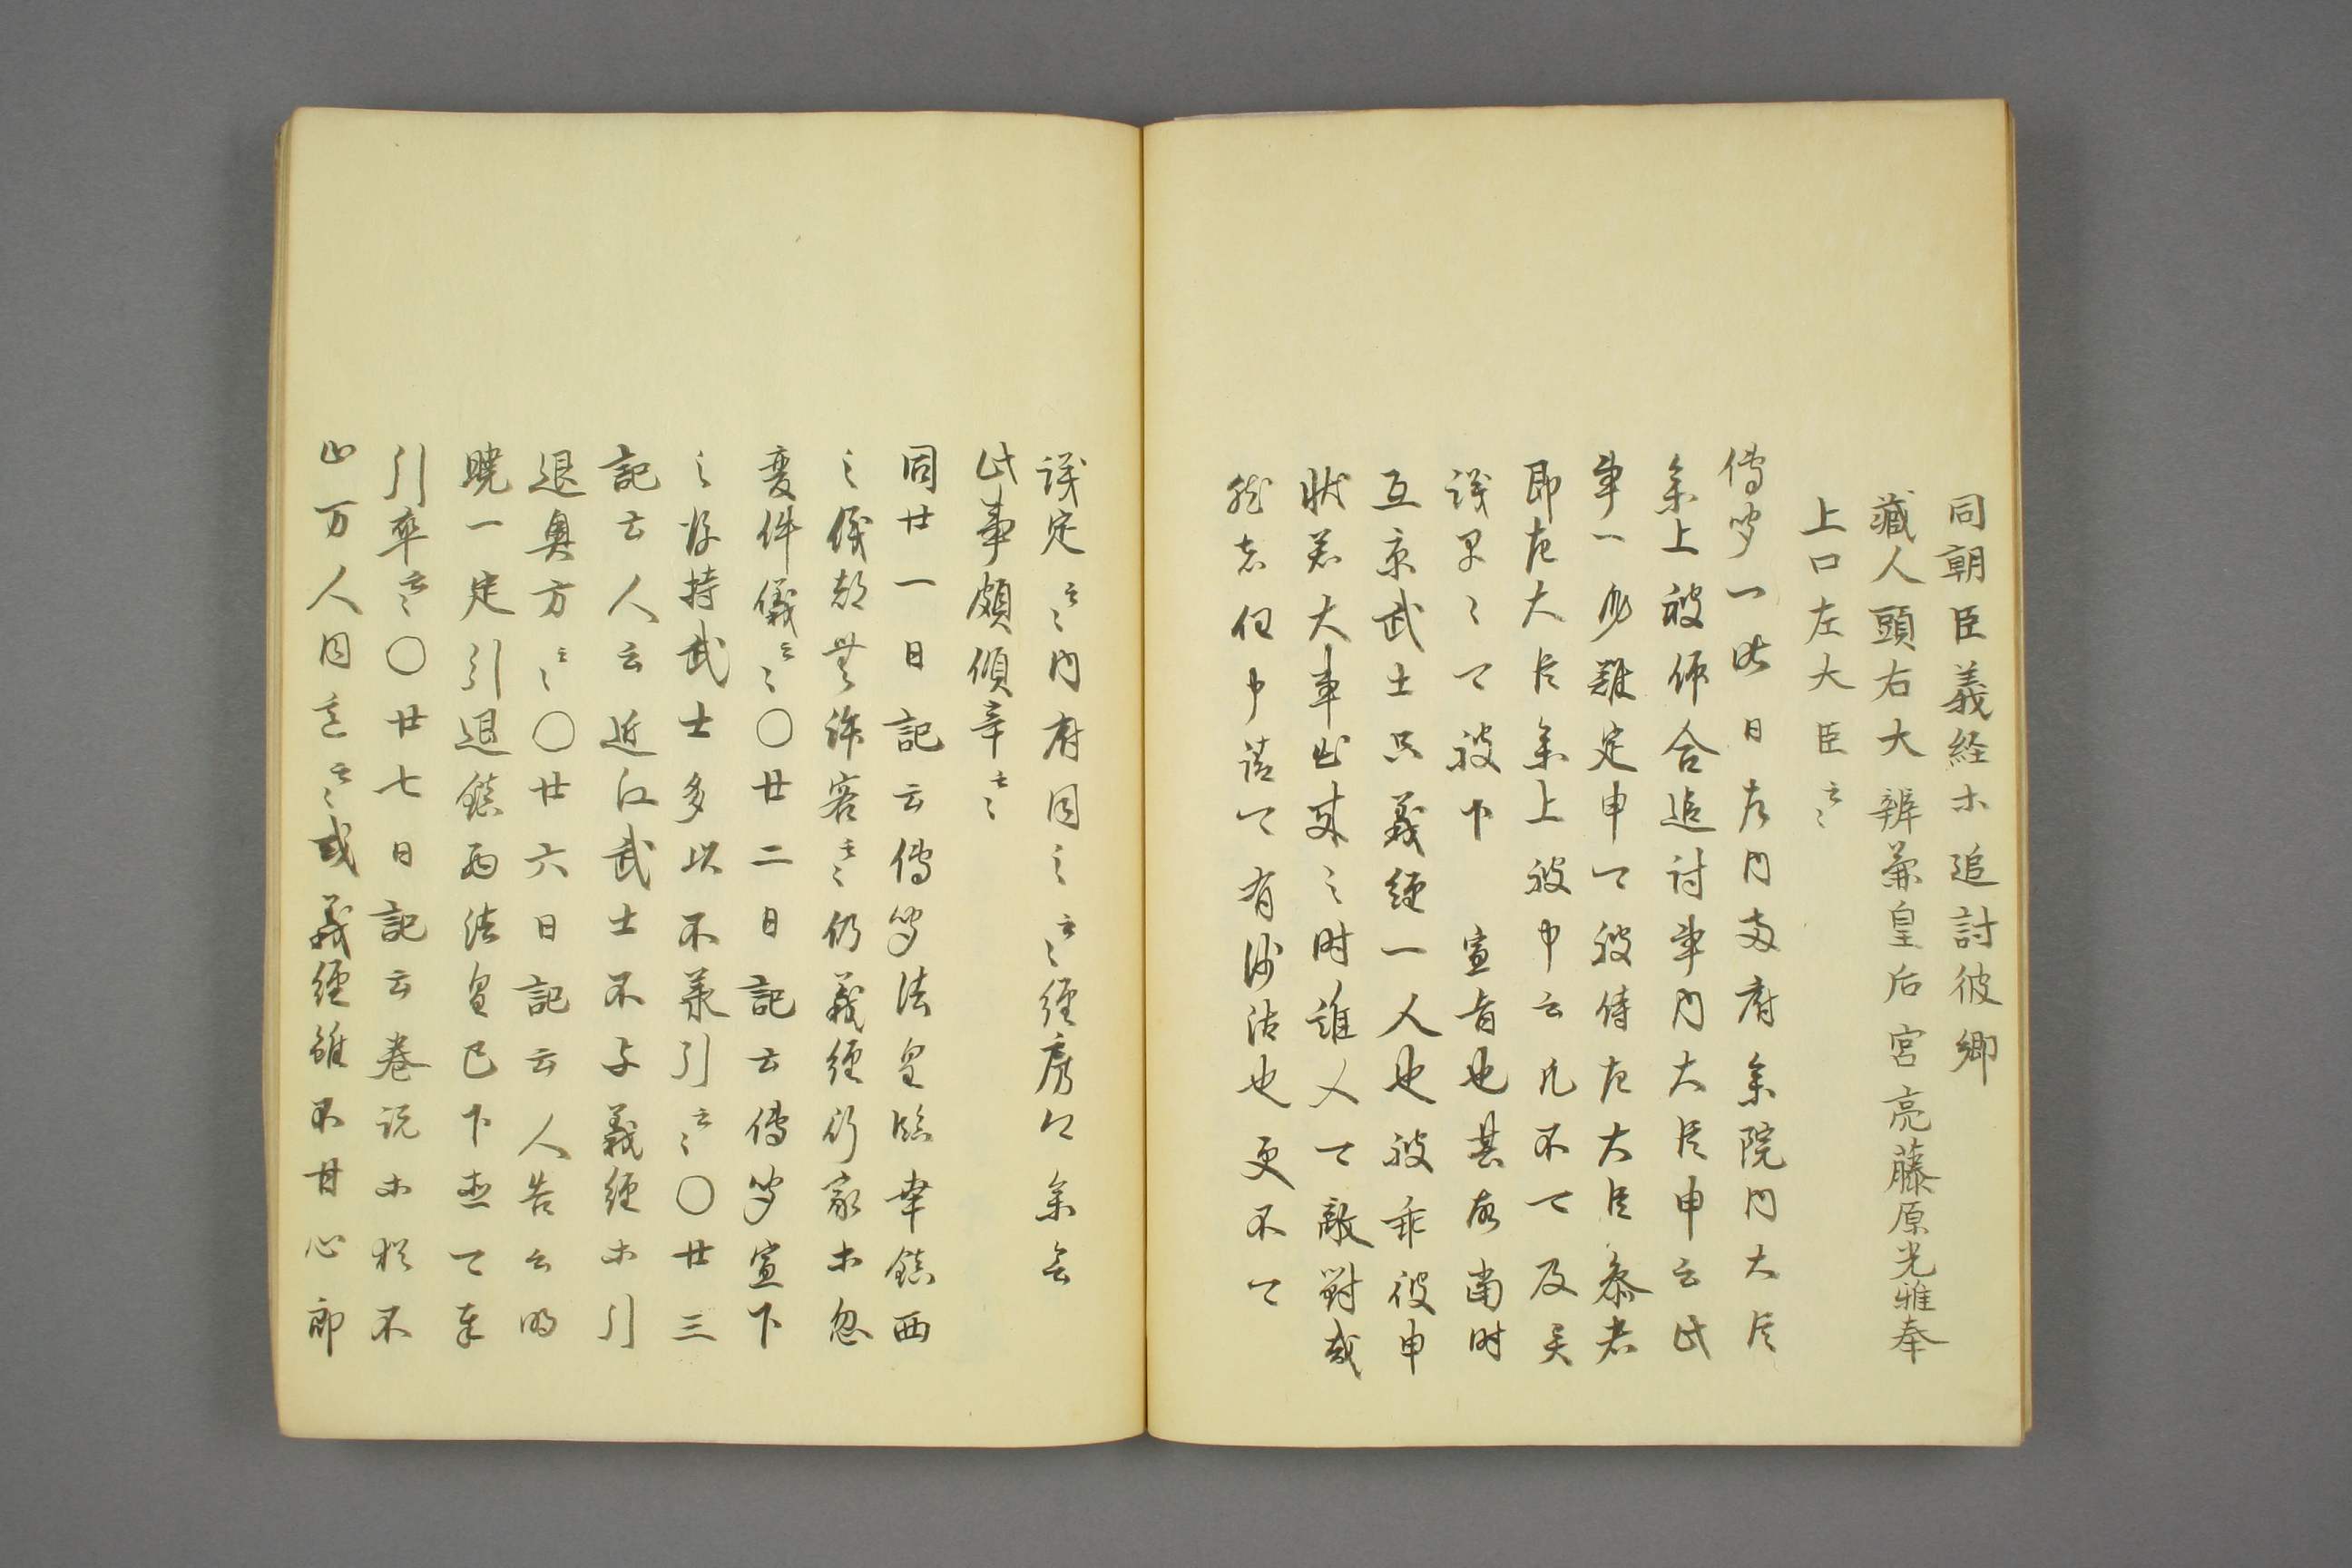 同朝臣義経ホ追討彼卿
蔵人頭右大辨兼皇后宮亮藤原光雅奉
上口左大臣云々
傳聞一昨日左内両府参院内大臣
参上被仰合追討事内大臣申云此
事一身難定申可被待左大臣参者
即左大臣参上被申云凡不可及異
議早々可被下　宣旨也其故当時
在京武士只義経一人也被乖彼申
状若大事出来之時誰人可敵對哉
然者任申請可有沙汰也更不可
議定云々内府同之云々経房卿参会
此事頗傾奇云々
同廿一日記云傳聞法皇臨幸鎮西
之儀都無許容云々仍義経行家ホ忽
変件儀云々〇廿二日記云傳聞宣下
之後持武士多以不兼引云々〇廿三
記云人云近江武士不与義経ホ引
退奥方云々〇廿六日記云人告云明
曉一定引退鎮西法皇已下悉可奉
引率云々〇廿七日記云巷説ホ猶不
止万人同意云々或義経雖不甘心郎